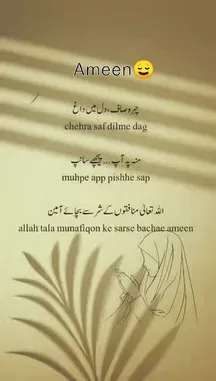 Ameen😌
چہرہ صاف، دل میں داغ
chehra saf dilme dag
منہ پہ آپ...پیچھے سانپ
muhpe app pishhe sap
اللہ تعالیٰ منافقوں کے شر سے بچائے آمین
allah tala munafiqon ke sarse bachae ameen